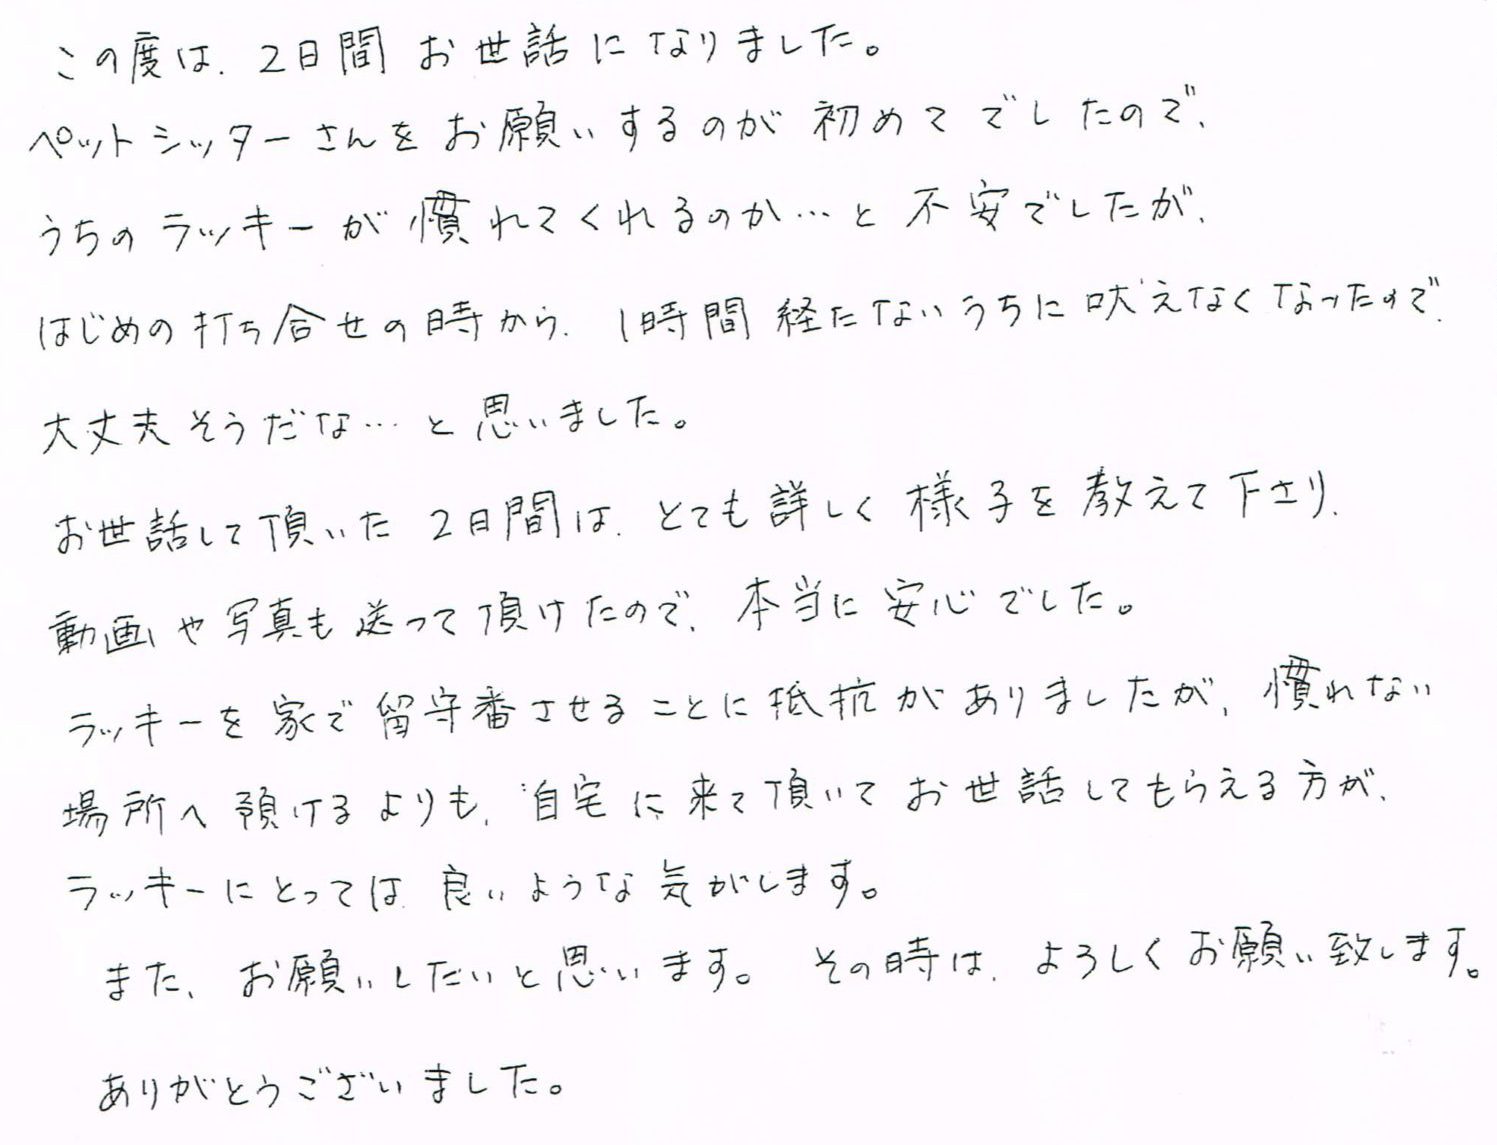 この度は、2日間 お世話になりました。
ペットシッターさんをお願いするのが 初めてでしたので、
うちのラッキーが 慣れてくれるのか…と 不安でしたが、
はじめの打ち合せの時から、1時間経たないうちに吠えなくなったので、
大丈夫そうだな…と思いました。
お世話して頂いた 2日間は、とても詳しく様子を教えて下さり、
動画や写真も送って頂けたので、本当に安心でした。
ラッキーを家で留守番させることに抵抗がありましたが、慣れない
場所へ預けるよりも、自宅に来て頂いてお世話してもらえる方が、
ラッキーにとっては 良いような気がします。
また、お願いしたいと思います。 その時は、よろしくお願い致します。
ありがとうございました。